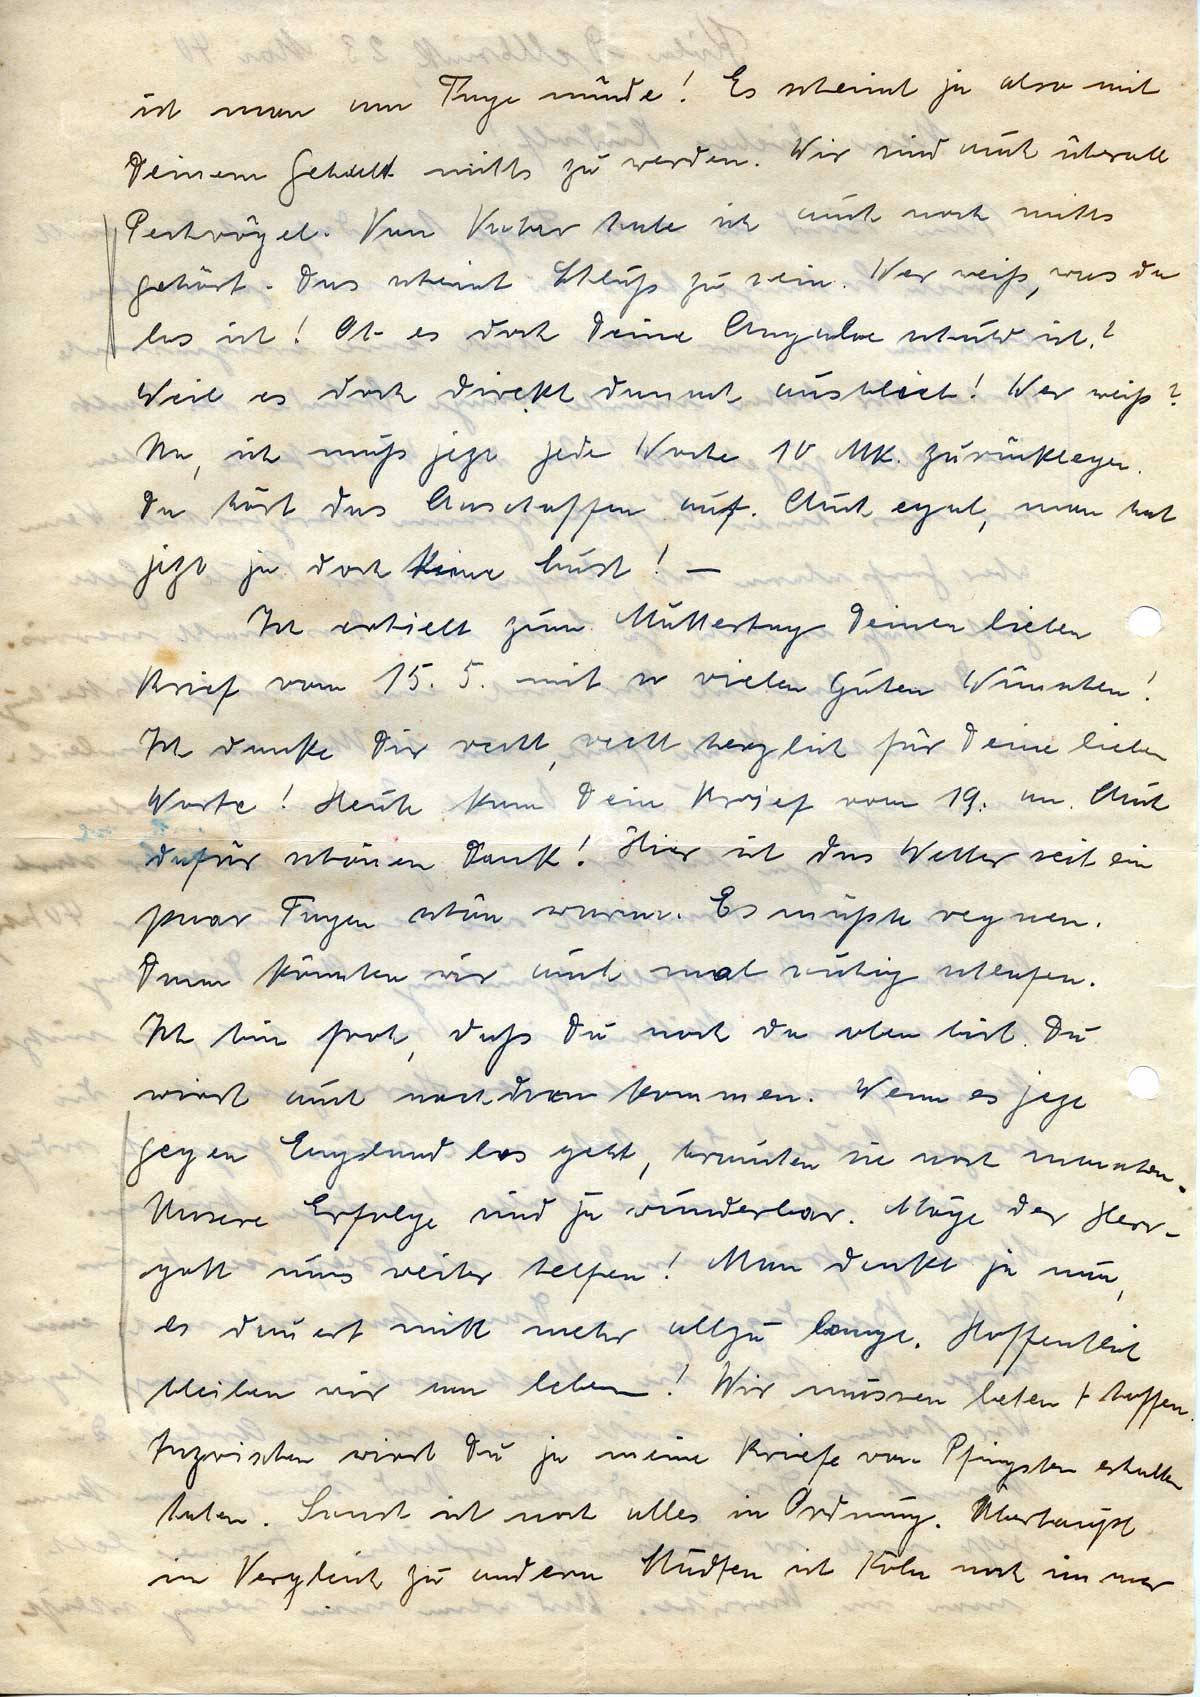 ist man am Tage müde! Es scheint ja also mit
Deinem Gehalt nichts zu werden. Wir sind auch überall
Pechvögel. Von Vater habe ich auch noch nichts
gehört. Das scheint Schluß zu sein. Wer weiß, was da
los ist! Ob es doch Deine Angabe schuld ist?
Weil es doch direkt danach ausblieb! Wer weiß?
Na, ich muß jetzt jede Woche 10 MK. zurücklegen.
Da hört das Anschaffen auf. Auch egal, man hat
jetzt ja doch keine Lust! —
Ich erhielt zum Muttertag Deinen lieben
Brief vom 15. 5. mit so vielen guten Wünschen!
Ich danke Dir recht, recht herzlich für Deine lieben
Worte! Heute kam Dein Brief vom 19. an. Auch
dafür schönen Dank! Hier ist das Wetter seit ein
paar Tagen schön warm. Es müßte regnen.
Dann könnten wir auch mal ruhig schlafen.
Ich bin froh, daß Du noch da oben bist. Du
wirst auch noch dran kommen. Wenn es jetzt
gegen England los geht, brauchen sie noch manchen.
Unsere Erfolge sind ja wunderbar. Möge der Herr-
gott uns weiter helfen! Man denkt ja nun,
es dauert nicht mehr allzu lange. Hoffentlich
bleiben wir am Leben! Wir müssen beten + hoffen.
Inzwischen wirst Du ja meine Briefe von Pfingsten erhalten
haben. Sonst ist noch alles in Ordnung. Überhaupt
im Vergleich zu andern Städten ist Köln noch immer